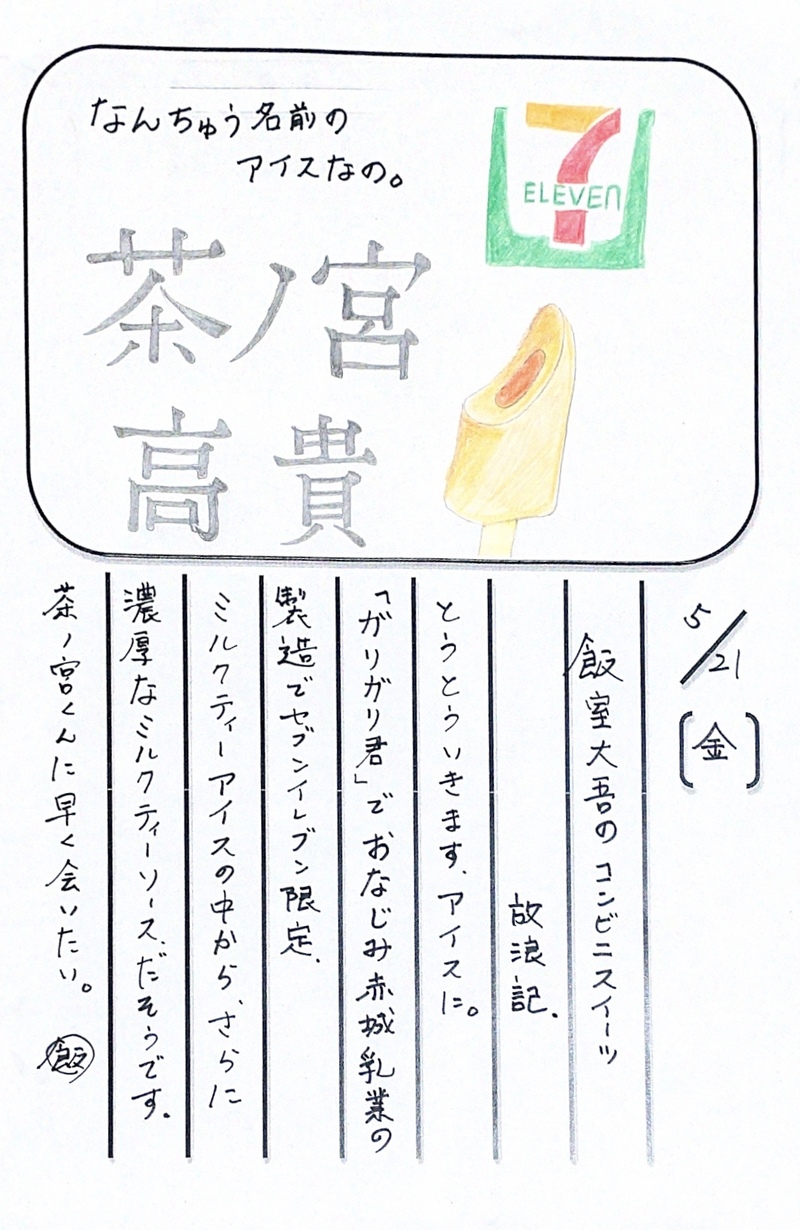 なんちゅう名前の
アイスなの。
茶ノ宮
高貴
7
ELEVEN
5/21
(金)
飯室大吾のコンビニスイーツ
放浪記.
とうとういきます.アイスに。
「ガリガリ君」でおなじみ赤城乳業の
製造でセブンイレブン限定.
ミルクティーアイスの中から、さらに
濃厚なミルクティーソース、だそうです.
茶ノ宮くんに早く会いたい。
飯